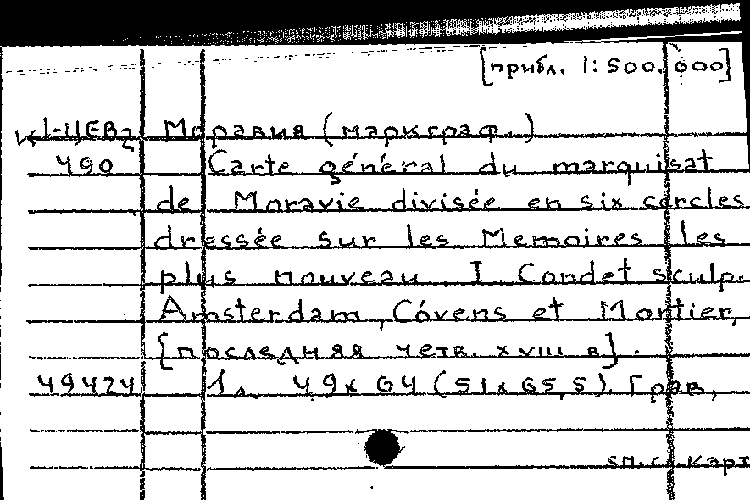 [прибл. 1:500.000]
Моравия (маркграф.)
490 Carte général du marquisat
de Moravie divisée en six cercles
dressée sur les Memoires les
plus nouveau I Condet sculp.
Amsterdam, Cóvens et Mortier,
[последняя четв. XVIII в].
49424 1л. 49х64 (51х65,5). Грав,